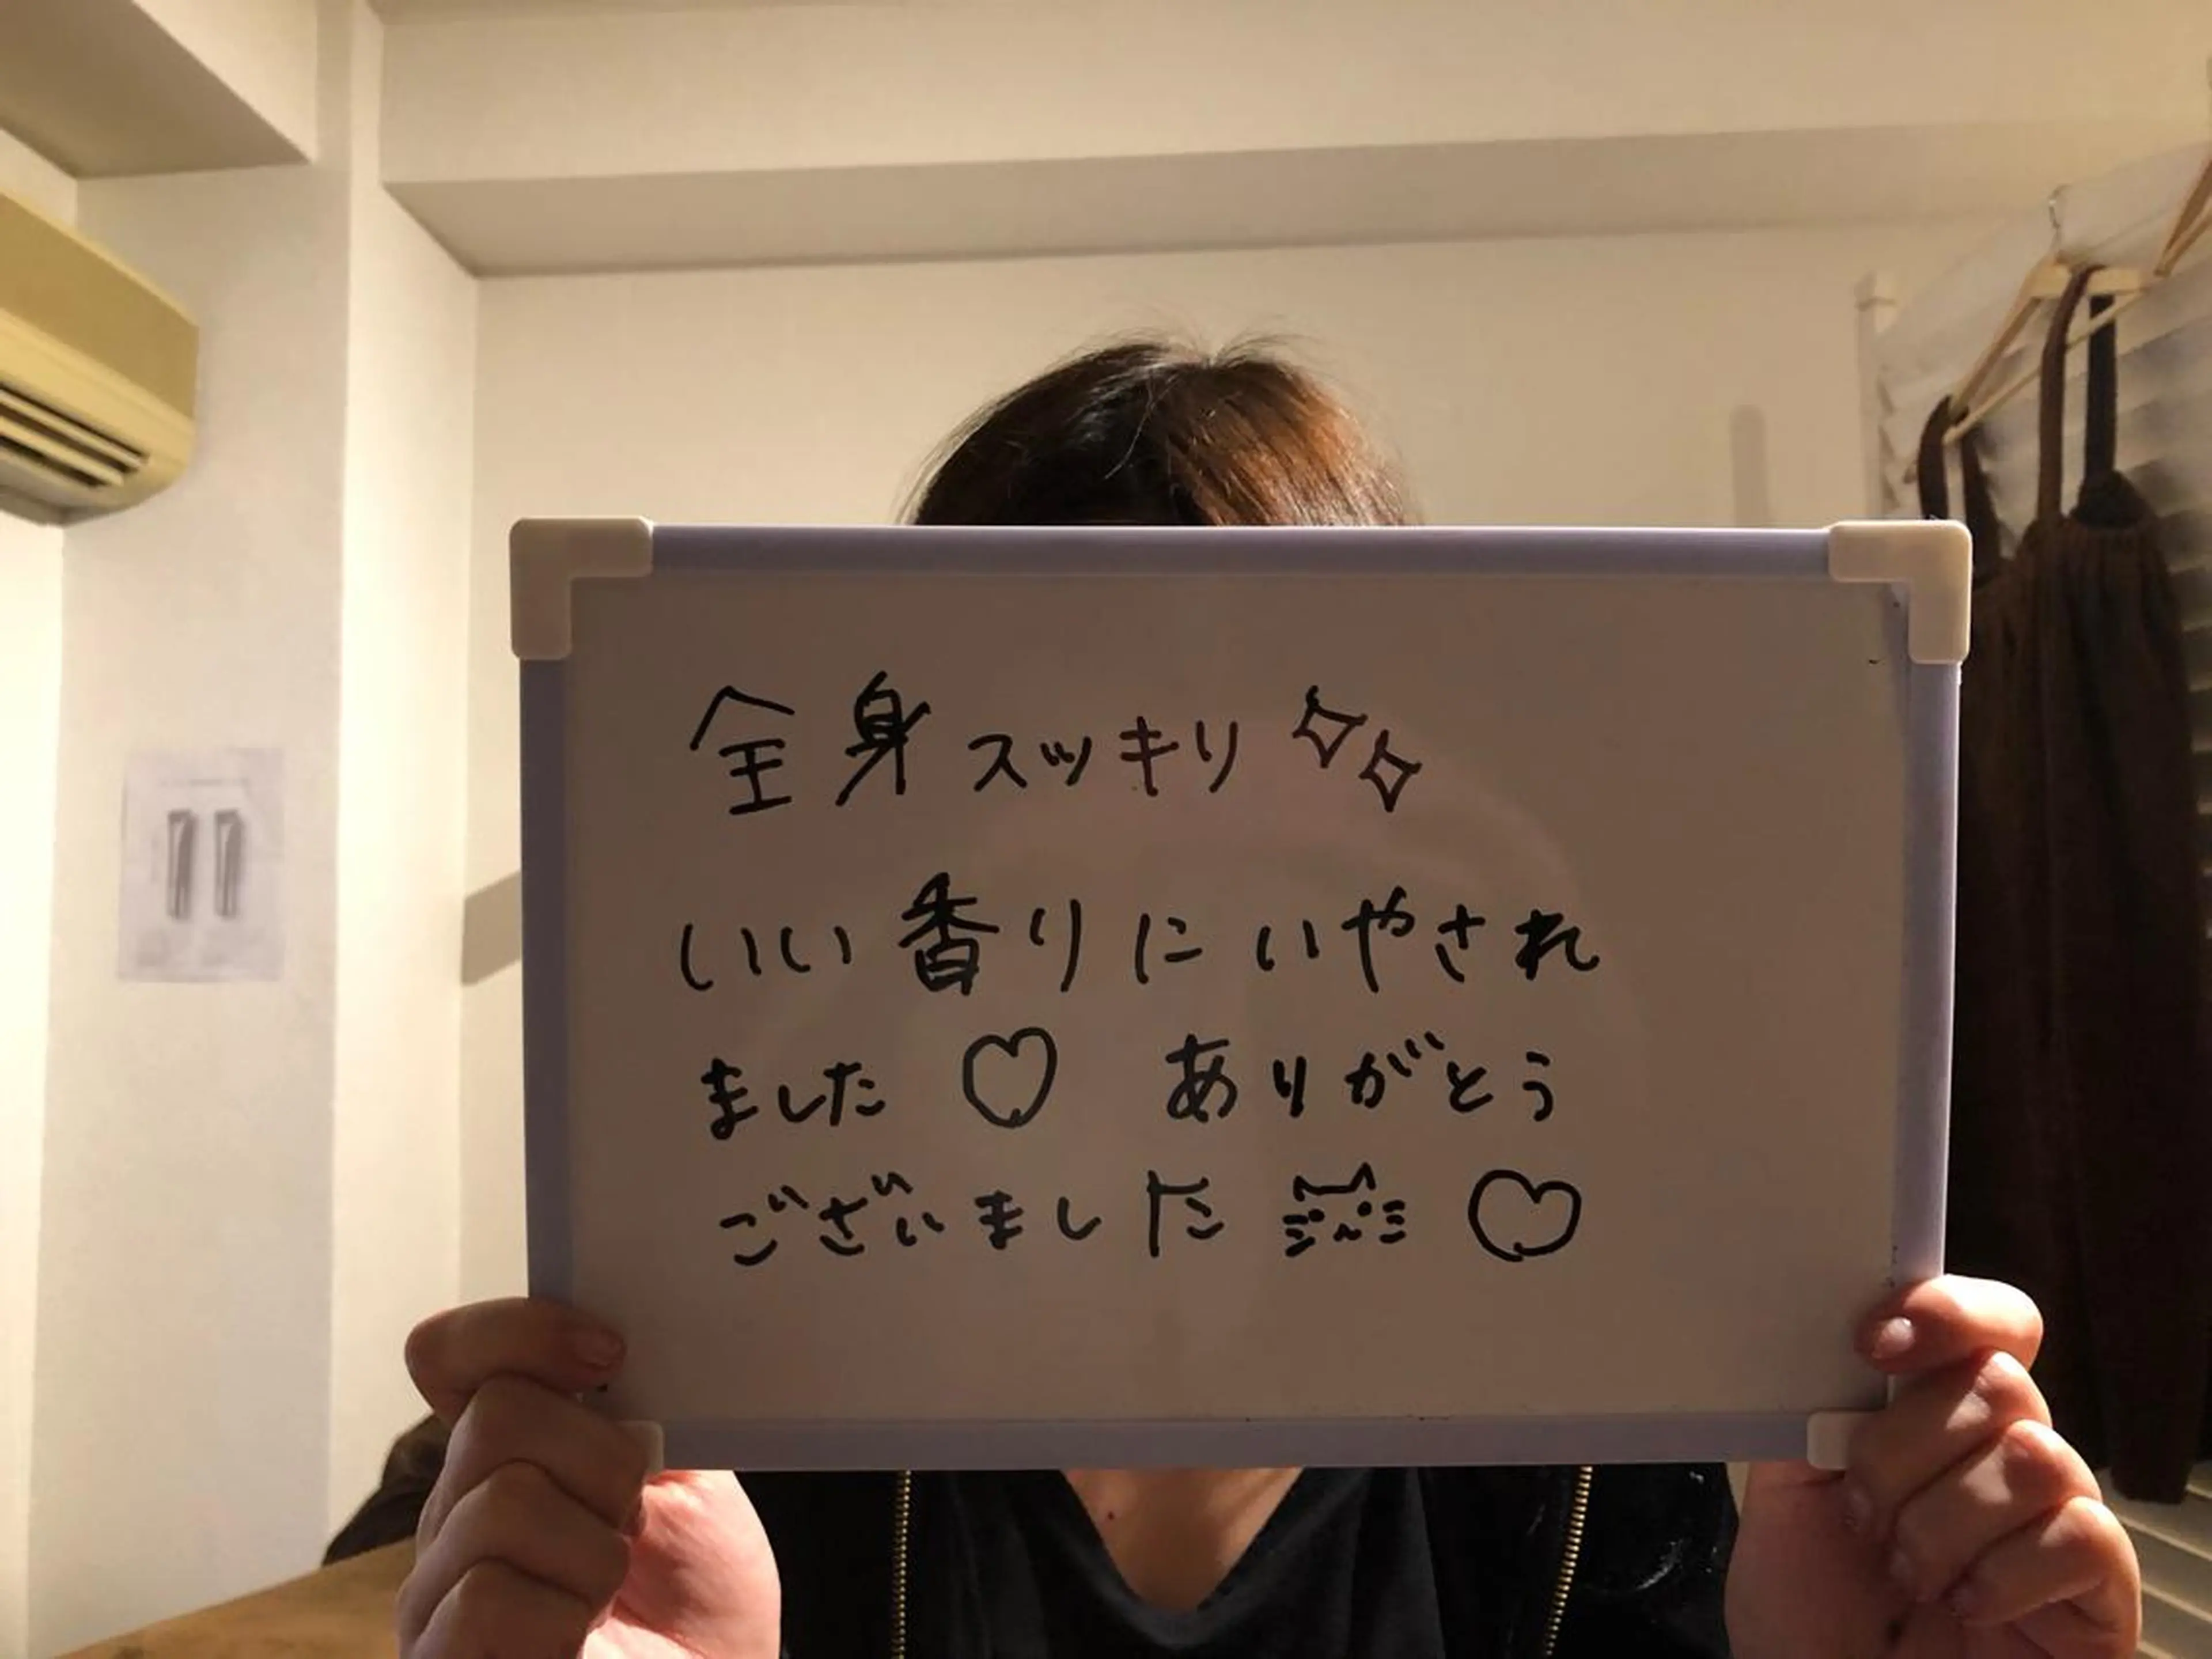 全身スッキリ
いい香りにいやされ
ました♡ ありがとう
ございました ♡